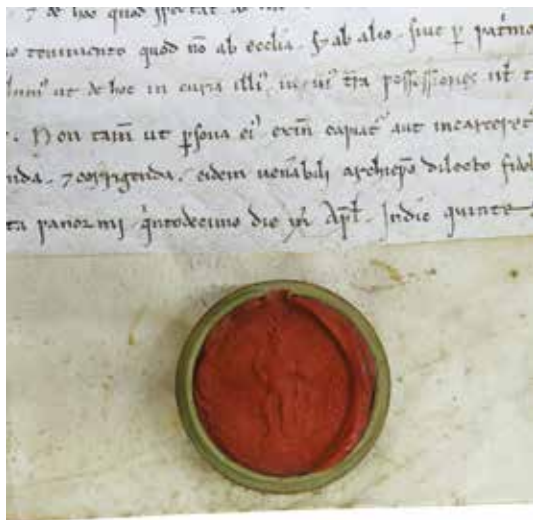 ⁊ de hoc quod spectat
tenimento quod nō ab ecclīa. sȝ ab alio. siue ꝑ pat̄mo
ut de hoc in curia illiꝰ in cuiꝰ t̄ra possessiones ut̄
. Non tam̄ ut ꝑsona eiꝰ exin̄ capiat̄ aut incarceret̄
nda. ⁊ corrigenda. eidem uenābili archiep̄o dilecto fidel
ta panormi qͥntodecimo die Apl̄. Indic̄ quinte